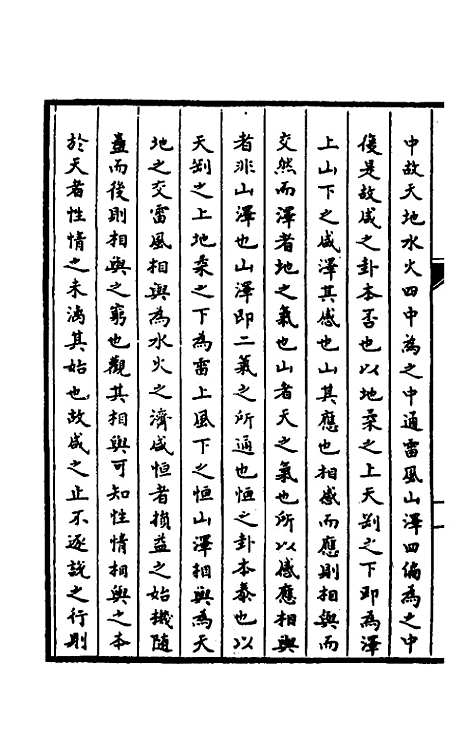 中故天地水火四中為之中通雷風山澤四偏為之中
後是故咸之卦本否也以地柔之上天剛之下即為澤
上山下之咸澤其感也山其應也相感而應則相與而
交然而澤者地之氣也山者天之氣也所以感應相與
者非山澤也山澤即二氣之所通也恒之卦本泰也以
天剛之上地柔之下為雷上風下之恒山澤相與為天
地之交雷風相與為水火之濟咸恒者損益之始機隨
蠱而後則相與之窮也觀其相與可知性情相與之本
於天者性情之未漓其始也故咸之止不逐說之行則